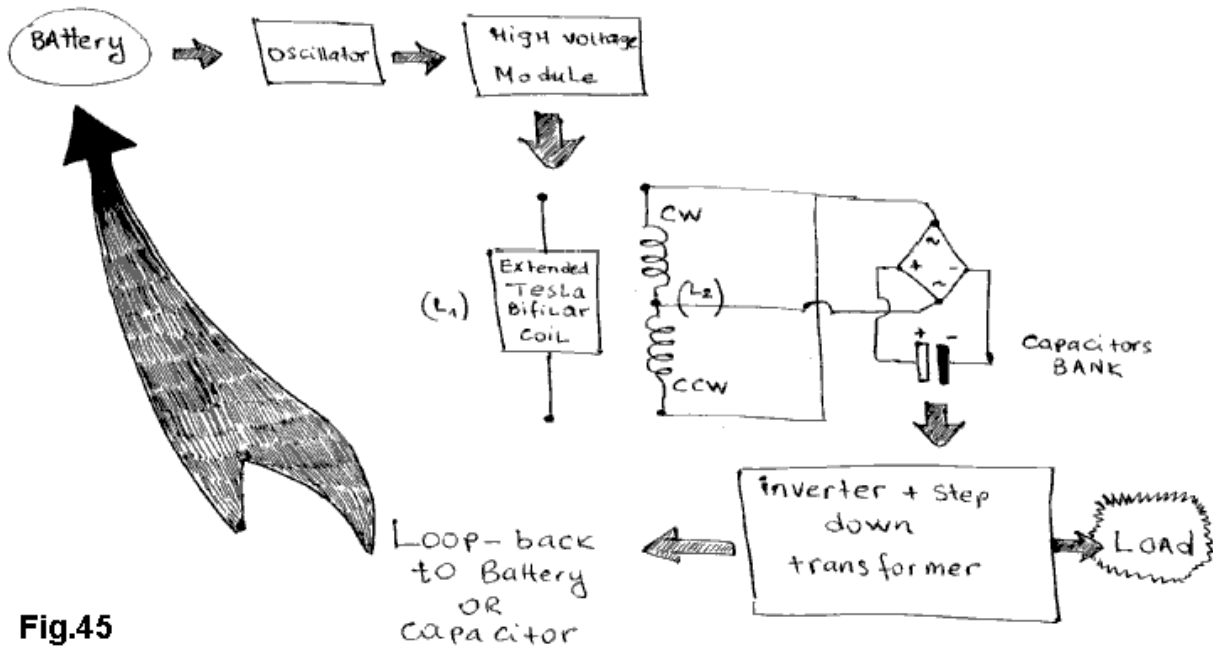 BAttery
Oscillator
High Voltage
Module
(L1)
Extended
Tesla
Bifilar
Coil
CW
(L2)
CCW
~
+
-
~
+ -
Capacitors
BANK
inverter + Step
down
transformer
LOAd
Loop-back
to Battery
OR
Capacitor
Fig.45